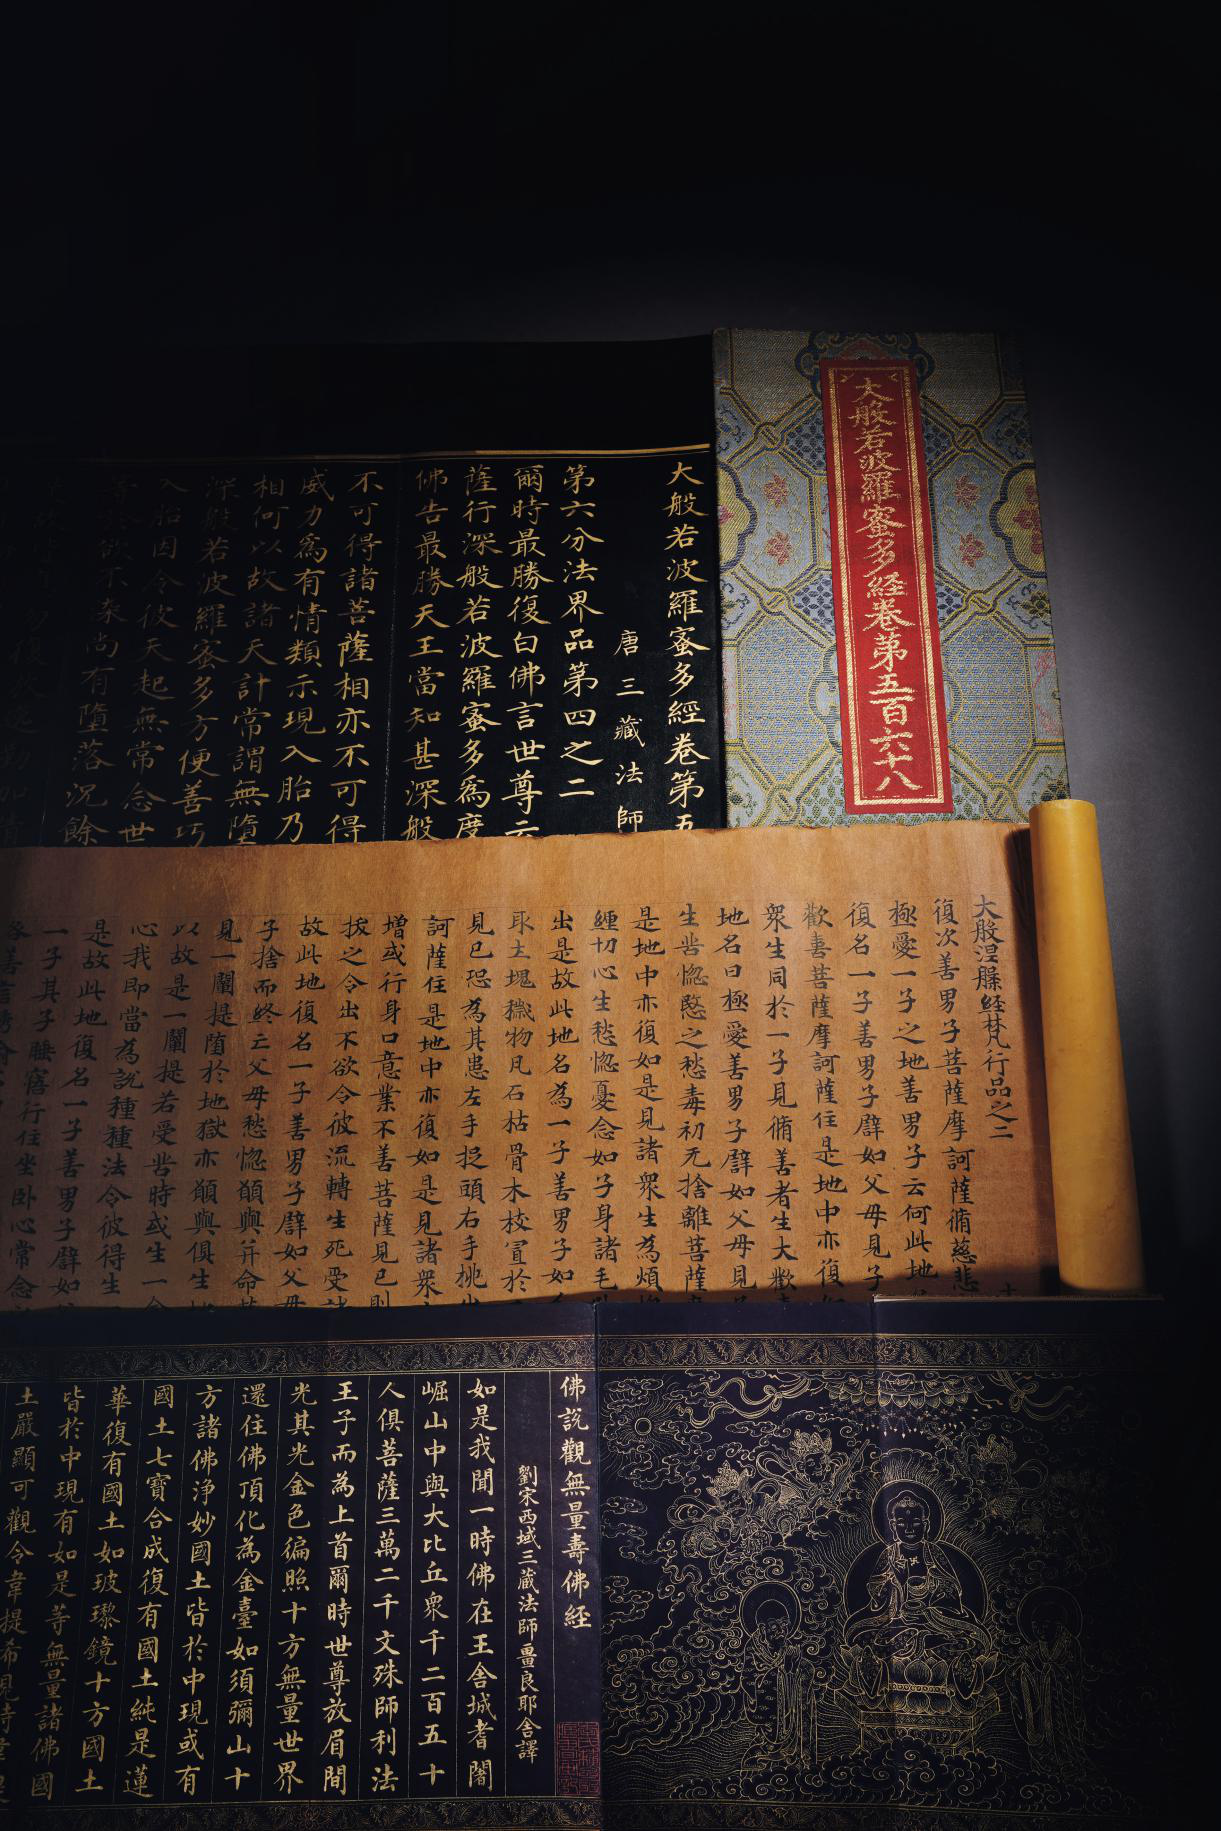 大般若波羅蜜多經卷第五百六十八
大般若波羅蜜多經卷第五
唐三藏法師
第六分法界品第四之二
爾時最勝復白佛言世尊云
薩行深般若波羅蜜多為度
佛告最勝天王當知甚深般
不可得諸菩薩相亦不可得
威力為有情類示現入胎乃
相何以故諸天計常謂無墮
深般若波羅蜜多方便善巧
入胎因令彼天起無常念世
欲不染尚有墮落況餘
大般涅槃經梵行品之二
復次善男子菩薩摩訶薩脩慈悲
極愛一子之地善男子云何此地
復名一子善男子譬如父母見子
歡喜菩薩摩訶薩住是地中亦復如
衆生同於一子見脩善者生大歡
地名曰極愛善男子譬如父母見子
生苦惱愍之愁毒初无捨離菩薩
是地中亦復如是見諸衆生為煩惱
纏切心生愁惱憂念如子身諸毛
出是故此地名為一子善男子如
取土塊穢物凡石枯骨木枝置於
見已恐為其患左手捉頭右手挑出
訶薩住是地中亦復如是見諸衆
增或行身口意業不善菩薩見已則
拔之令出不欲令彼流轉生死受諸
故此地復名一子善男子譬如父母
子捨而終亡父母愁惱願與并命菩
見一闡提墮於地獄亦願與俱生地
以故是一闡提若受苦時或生一念
心我即當為說種種法令彼得生一
是故此地復名一子善男子譬如
一子其子睡寤行住坐卧心常念
佛說觀無量壽佛經
劉宋西域三藏法師畺良耶舍譯
如是我聞一時佛在王舍城耆闍
崛山中與大比丘衆千二百五十
人俱菩薩三萬二千文殊師利法
王子而為上首爾時世尊放眉間
光其光金色徧照十方無量世界
還住佛頂化為金臺如須彌山十
方諸佛淨妙國土皆於中現或有
國土七寶合成復有國土純是蓮
華復有國土如玻瓈鏡十方國土
皆於中現有如是等無量諸佛國
土嚴顯可觀令韋提希見時